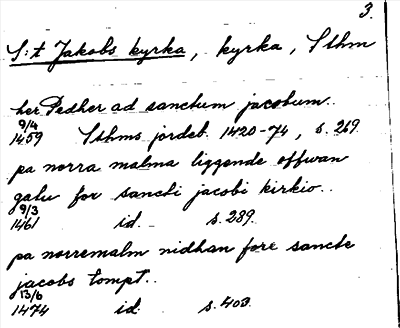 3.
S:t Jakobs kyrka, kyrka, Sthm
her Pedher ad sanctum jacobum..
9/4
1459 Sthms jordeb. 1420-74, s. 269.
pa norra malma liggende offwan
gatu for sancti jacobi kirkio..
9/3
1461 id. s. 289.
pa norremalm nidhan fore sancte
jacobs tompt..
13/6
1474 id. s. 403.